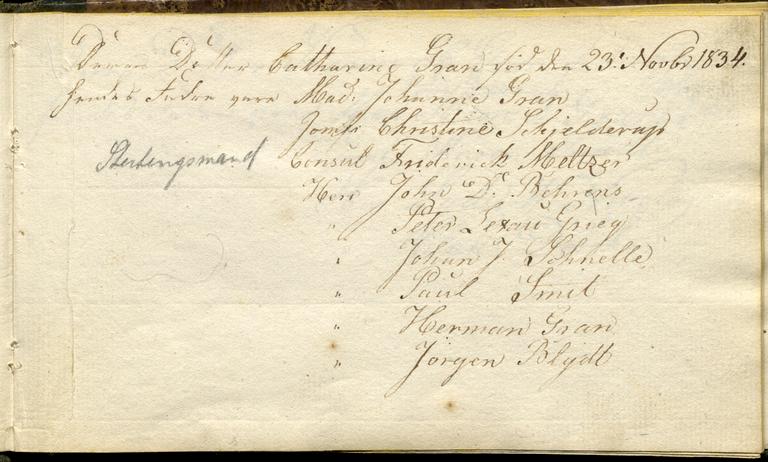 Deres Datter Catharine Gran fød den 23: Novbr 1834.
hendes Fadre vare Mad: Johanne Gran
Jomfr Christine Schjelderup
Stortingsmand Consul Friderich Meltzer
Herr John D. Behrens
" Peter Lexau Grieg
" Johan J. Schnelle
" Paul Smit
" Herman Gran
" Jørgen Blydt